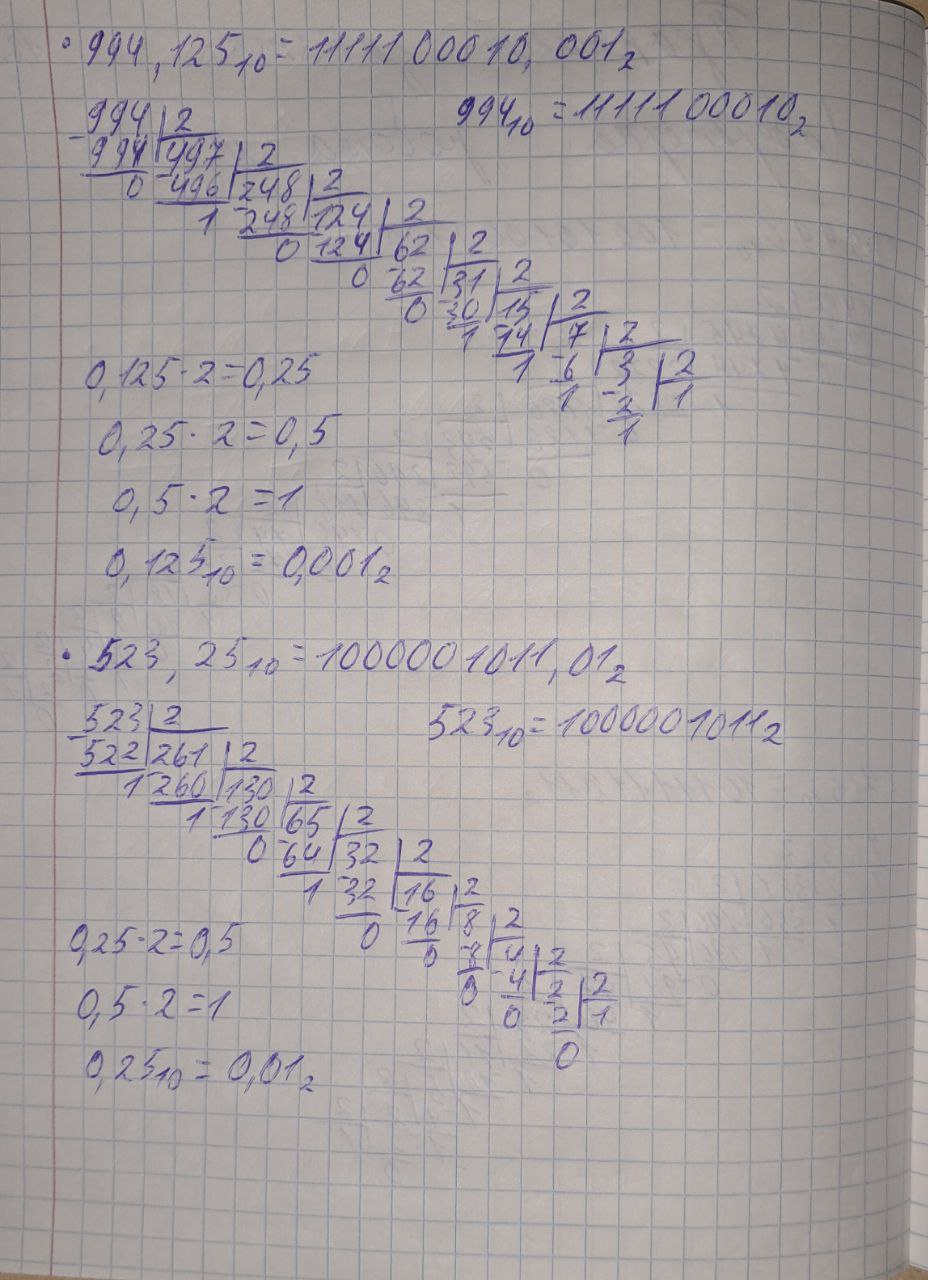 · 994,125₁₀ = 1111100010,001₂
994 | 2 994₁₀ = 1111100010₂
994 497 | 2
0 496 248 | 2
1 248 124 | 2
0 124 62 | 2
0 62 31 | 2
0 30 15 | 2
1 14 7 | 2
1 6 3 | 2
1 2 1
1
0,125 · 2 = 0,25
0,25 · 2 = 0,5
0,5 · 2 = 1
0,125₁₀ = 0,001₂
· 523,25₁₀ = 1000001011,01₂
523 | 2 523₁₀ = 1000001011₂
522 261 | 2
1 260 130 | 2
1 130 65 | 2
0 64 32 | 2
1 32 16 | 2
0 16 8 | 2
0 8 4 | 2
0 4 2 | 2
0 2 1
0
0,25 · 2 = 0,5
0,5 · 2 = 1
0,25₁₀ = 0,01₂